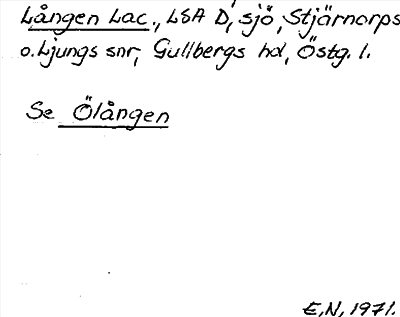 Lången Lac., LSA D, sjö, Stjärnorps
o. Ljungs snr, Gullbergs hd, Östg. l.
Se Ölången
E.N. 1971.